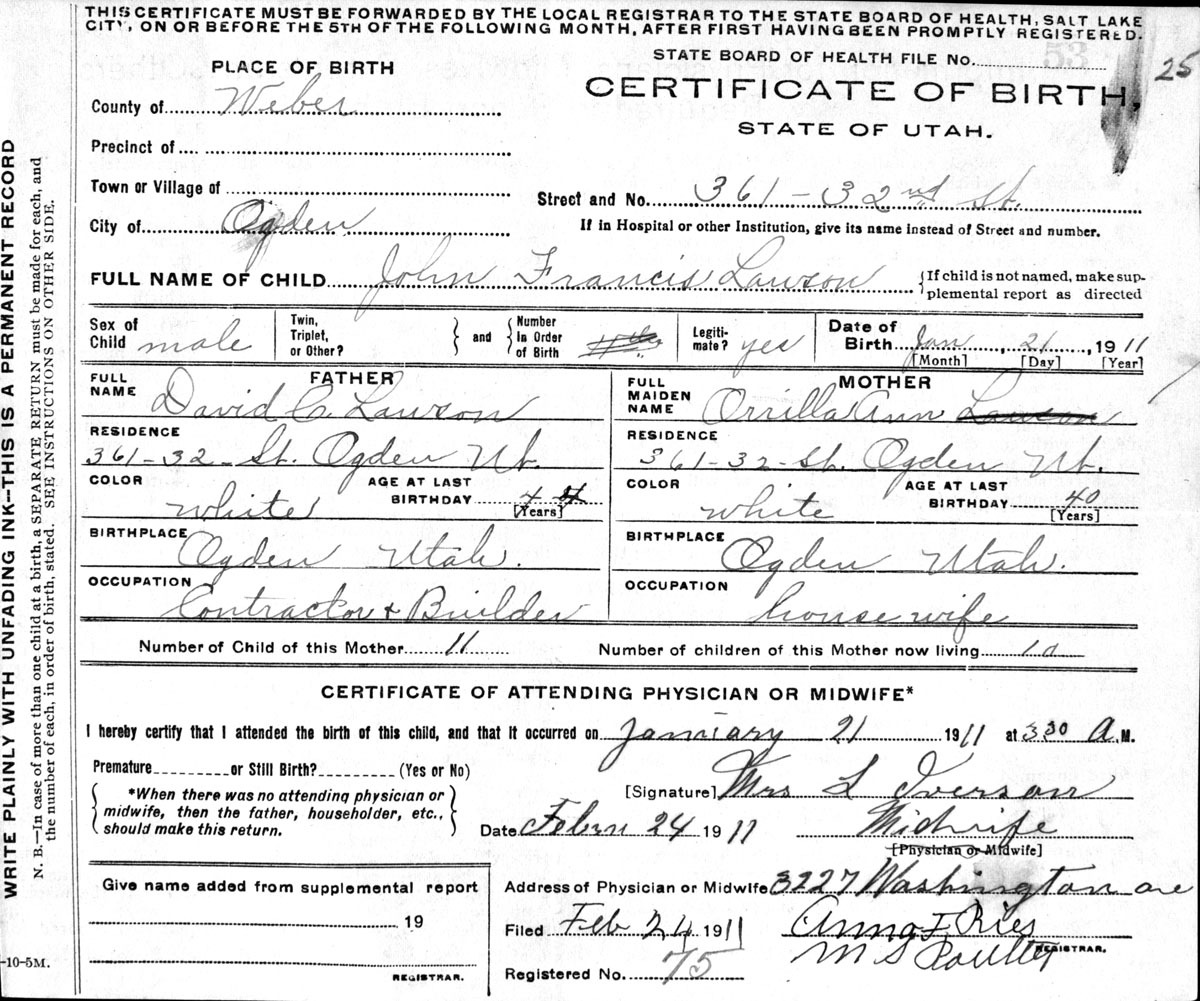 THIS CERTIFICATE MUST BE FORWARDED BY THE LOCAL REGISTRAR TO THE STATE BOARD OF HEALTH, SALT LAKE
CITY, ON OR BEFORE THE 5TH OF THE FOLLOWING MONTH, AFTER FIRST HAVING BEEN PROMPTLY REGISTERED.
STATE BOARD OF HEALTH FILE No. 53 25
PLACE OF BIRTH
CERTIFICATE OF BIRTH,
STATE OF UTAH.
County of Weber
Precinct of
Town or Village of
Street and No. 361-32nd St.
City of Ogden
If in Hospital or other Institution, give its name instead of Street and number.
FULL NAME OF CHILD John Francis Lawson {If child is not named, make sup-
plemental report as directed
Sex of Child male Twin, Triplet, or Other? } and { Number In Order of Birth Legiti-mate? yes Date of Birth Jan, 21, 1911
[Month] [Day] [Year]
FATHER
FULL NAME David C Lawson
RESIDENCE
361-32-St. Ogden Ut.
COLOR white AGE AT LAST BIRTHDAY 44
[Years]
BIRTHPLACE
Ogden Utah.
OCCUPATION
Contractor & Builder
MOTHER
FULL MAIDEN NAME Orrilla Ann Lawson
RESIDENCE
361-32-St. Ogden Ut.
COLOR white AGE AT LAST BIRTHDAY 40
[Years]
BIRTHPLACE
Ogden Utah.
OCCUPATION
house wife
Number of Child of this Mother 11 Number of children of this Mother now living 10
CERTIFICATE OF ATTENDING PHYSICIAN OR MIDWIFE*
I hereby certify that I attended the birth of this child, and that it occurred on January 21 1911 at 3 30 A.M.
Premature or Still Birth? (Yes or No)
{*When there was no attending physician or
midwife, then the father, householder, etc.,
should make this return.}
[Signature] Mrs L Iverson
Date 24 1911 Midwife
[Physician or Midwife]
Give name added from supplemental report
19
REGISTRAR.
Address of Physician or Midwife 3227 Washington ave
Filed Feb 24 1911 Anna F. Ries
M S REGISTRAR.
Registered No. 75
WRITE PLAINLY WITH UNFADING INK—THIS IS A PERMANENT RECORD
N. B.—In case of more than one child at a birth, a SEPARATE RETURN must be made for each, and
the number of each, in order of birth, stated. SEE INSTRUCTIONS ON OTHER SIDE.
-10-5M.